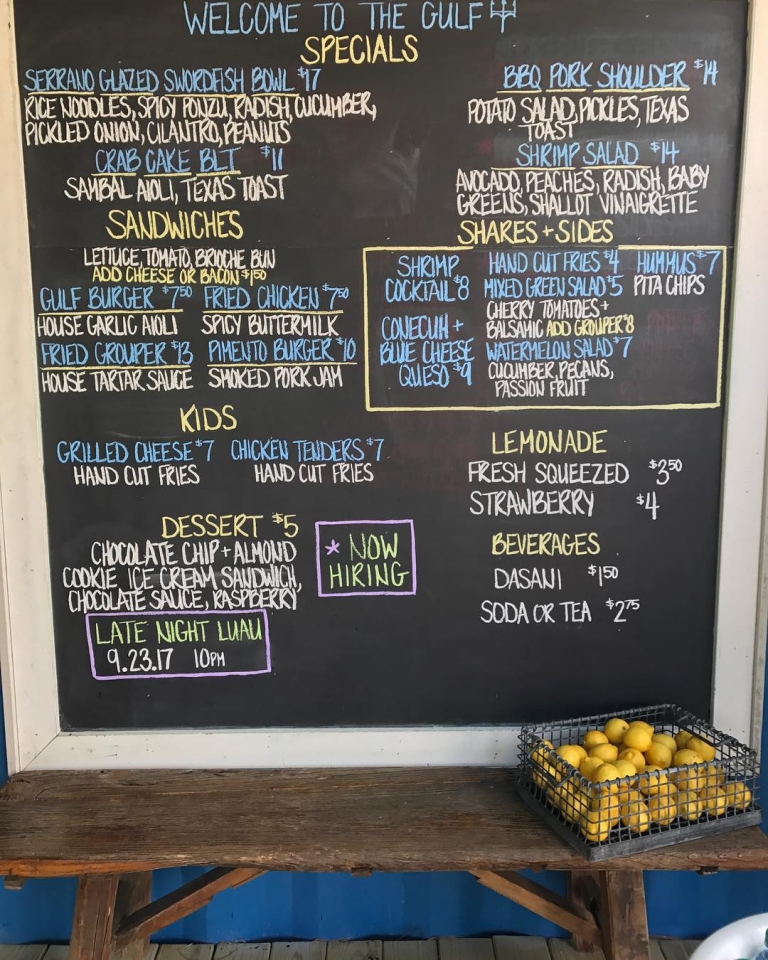 WELCOME TO THE GULF
SPECIALS
SERRANO GLAZED SWORDFISH BOWL $17
RICE NOODLES, SPICY PONZU, RADISH, CUCUMBER,
PICKLED ONION, CILANTRO, PEANUTS
CRAB CAKE BLT $11
SAMBAL AIOLI, TEXAS TOAST
BBQ PORK SHOULDER $14
POTATO SALAD, PICKLES, TEXAS
TOAST
SHRIMP SALAD $14
AVOCADO, PEACHES, RADISH, BABY
GREENS, SHALLOT VINAIGRETTE
SANDWICHES
LETTUCE, TOMATO, BRIOCHE BUN
ADD CHEESE OR BACON $1.50
GULF BURGER $7.50
HOUSE GARLIC AIOLI
FRIED CHICKEN $7.50
SPICY BUTTERMILK
FRIED GROUPER $13
HOUSE TARTAR SAUCE
PIMENTO BURGER $10
SMOKED PORK JAM
SHARES + SIDES
SHRIMP
COCKTAIL $8
CONECUH +
BLUE CHEESE
QUESO $9
HAND CUT FRIES $4
MIXED GREEN SALAD $5
CHERRY TOMATOES +
BALSAMIC ADD GROUPER $8
WATERMELON SALAD $7
CUCUMBER, PECANS,
PASSION FRUIT
HUMMUS $7
PITA CHIPS
KIDS
GRILLED CHEESE $7
HAND CUT FRIES
CHICKEN TENDERS $7
HAND CUT FRIES
LEMONADE
FRESH SQUEEZED $3.50
STRAWBERRY $4
DESSERT $5
CHOCOLATE CHIP + ALMOND
COOKIE ICE CREAM SANDWICH,
CHOCOLATE SAUCE, RASPBERRY
* NOW
HIRING
BEVERAGES
DASANI $1.50
SODA OR TEA $2.75
LATE NIGHT LUAU
9.23.17 10PM